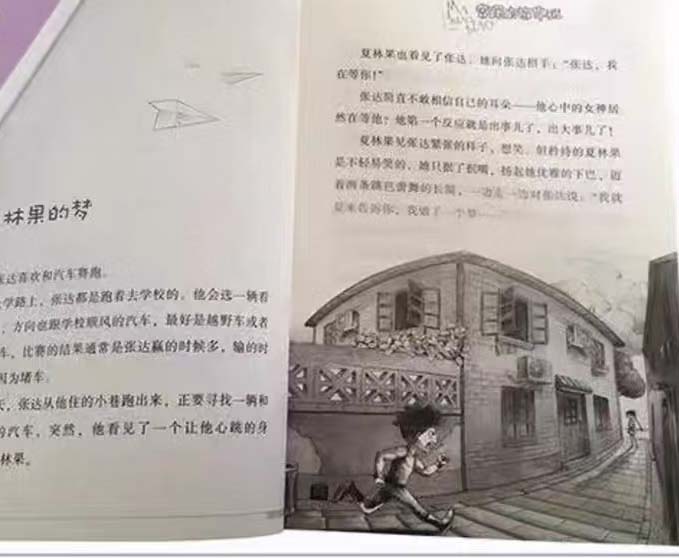 林果的梦
张达喜欢和汽车赛跑。
学路上，张达都是跑着去学校的。他会选一辆看
、方向也跟学校顺风的汽车，最好是越野车或者
车，比赛的结果通常是张达赢的时候多，输的时
因为堵车。
天，张达从他住的小巷跑出来，正要寻找一辆和
的汽车。突然，他看见了一个让他心跳的身
林果。
夏林果也看见了张达。她向张达招手：“张达，我
在等你！”
张达简直不敢相信自己的耳朵——他心中的女神居
然在等他？他第一个反应就是出事儿了，出大事儿了！
夏林果见张达紧张的样子，想笑。但矜持的夏林果
是不轻易笑的，她只抿了抿嘴，扬起她优雅的下巴，迈
着两条跳芭蕾舞的长腿，一边走一边对张达说：“我就
是来告诉你，我做了一个梦